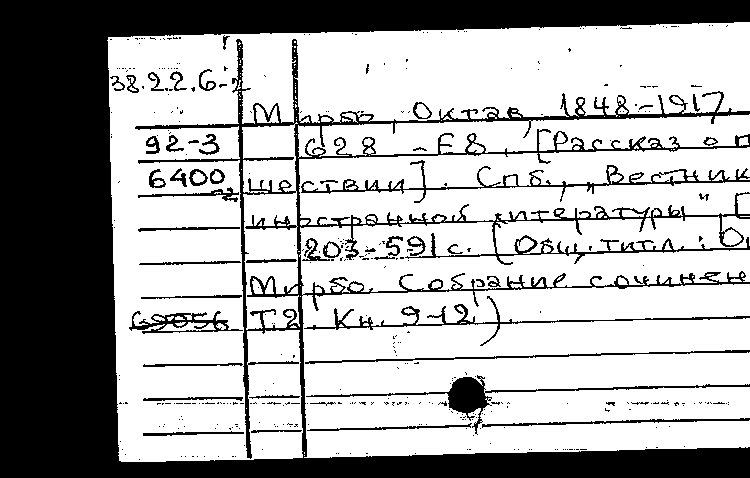 38.22.6-2
Мирбо, Октав, 1848-1917.
92-3 628 - Е8. [Рассказ о п
6400 шествии]. Спб., „Вестник
иностранной литературы", [
203-591 с. (Общ. тит. л.: Ок
Мирбо. Собрание сочинен
69056 Т.2. Кн. 9-12).